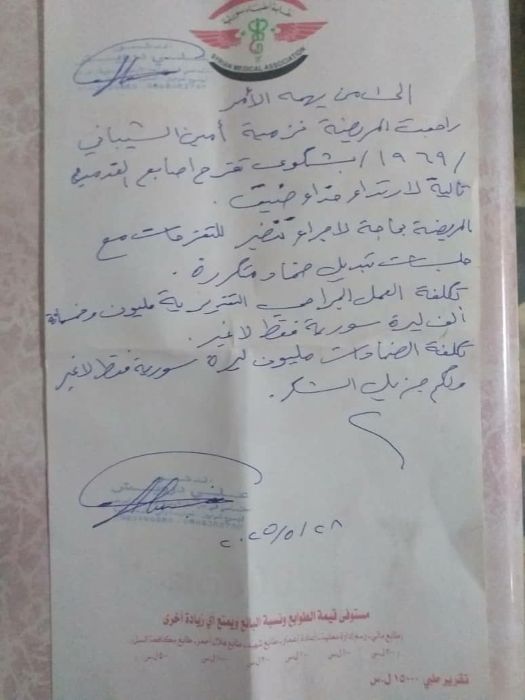 SYRIAN MEDICAL ASSOCIATION
إلى من يهمه الأمر
راجعت المريضة فزمية أمين الشيباني
/١٩٦٩/ بشكوى تقرح اصابع القدمين
تالية لارتداء حذاء ضيق.
المريضة بحاجة لاجراء تنضير للتقرحات مع
جلسات تبديل ضماد متكررة.
تكلفة العمل الجراحي التقريرية مليون وخمسمائة
ألف ليرة سورية فقط لاغير.
تكلفة الضمادات مليون ليرة سورية فقط لاغير
ولكم جزيل الشكر.
٢٠٢٥/٥/٢٨
مستوفى قيمة الطوابع ونسبة البائع ويمنع أي زيادة أخرى
تقرير طبي ١٥٠٠٠ ل.س